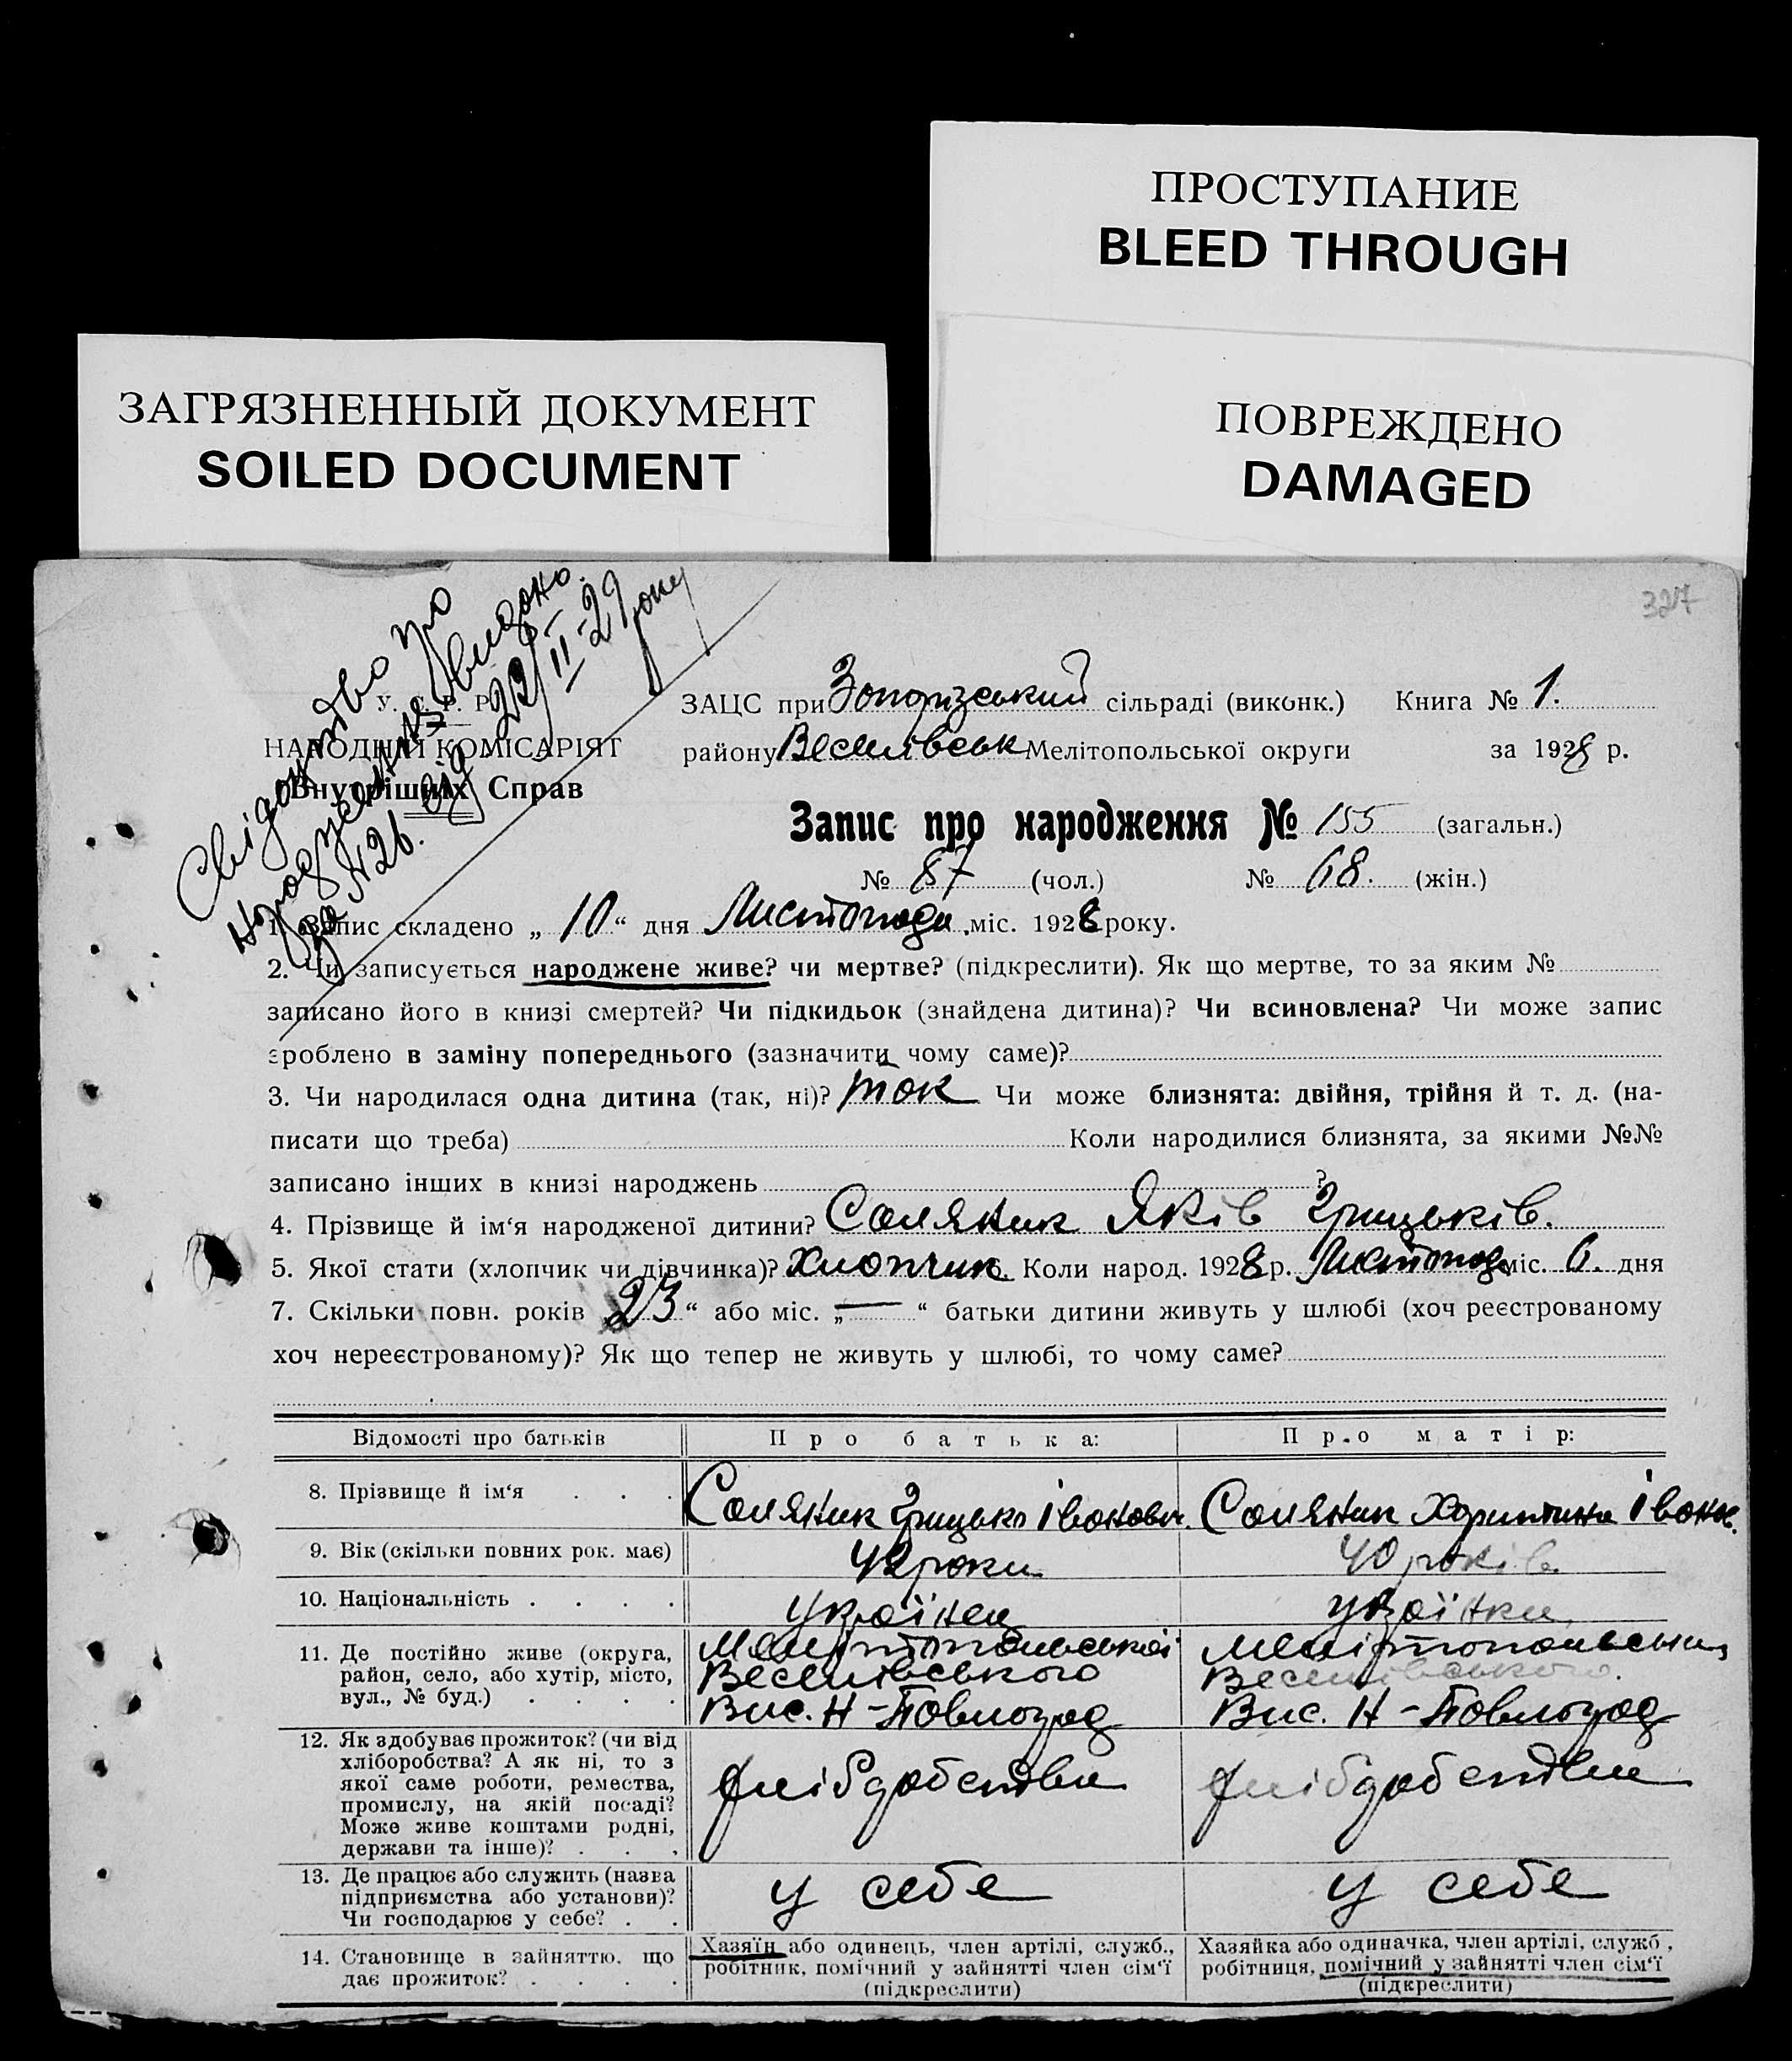 ПРОСТУПАНИЕ
BLEED THROUGH
ЗАГРЯЗНЕННЫЙ ДОКУМЕНТ
SOILED DOCUMENT
ПОВРЕЖДЕНО
DAMAGED
327
Свідоцтво про
народження видано
за №26. від 22/II-29 року
У. С. Р. Р.
НАРОДНІЙ КОМІСАРІЯТ
Внутрішніх Справ
ЗАЦС при Запорізський сільраді (виконк.) Книга № 1.
району Веселівськ Мелітопольської округи за 1928 р.
Запис про народження № 155 (загальн.)
№ 87 (чол.) № 68. (жін.)
1. Запис складено „ 10 “ дня Листопада міс. 1928 року.
2. Чи записується народжене живе? чи мертве? (підкреслити). Як що мертве, то за яким №
записано його в книзі смертей? Чи підкидьок (знайдена дитина)? Чи всиновлена? Чи може запис
зроблено в заміну попереднього (зазначити чому саме)?
3. Чи народилася одна дитина (так, ні)? так Чи може близнята: двійня, трійня й т. д. (на-
писати що треба) Коли народилися близнята, за якими №№
записано інших в книзі народжень ?
4. Прізвище й ім‘я народженої дитини? Саляник Яків Грицьків.
5. Якої стати (хлопчик чи дівчинка)? Хлопчик 6. Коли народ. 1928 р. Листопад міс. 6. дня
7. Скільки повн. років „ 23 “ або міс. „ — “ батьки дитини живуть у шлюбі (хоч реєстрованому
хоч нереєстрованому)? Як що тепер не живуть у шлюбі, то чому саме?
Відомості про батьків Про батька: Про матір:
8. Прізвище й ім‘я . . . Саляник Грицько Іванович. Саляник Христина Іванов.
9. Вік (скільки повних рок. має) 42 роки 40 років.
10. Національність . . . . українец українка
11. Де постійно живе (округа,
район, село, або хутір, місто,
вул., № буд.) . . . .
Мелітопольської
Веселівського
Вис. Н-Павлоград
Мелітопольськи
Веселівського.
Вис. Н-Павлоград
12. Як здобуває прожиток? (чи від
хліборобства? А як ні, то з
якої саме роботи, ремества,
промислу, на якій посаді?
Може живе коштами родні,
держави та інше)? . . .
13. Де працює або служить (назва
підприємства або установи)?
Чи господарює у себе? . .
у себе у себе
14. Становище в зайняттю, що
дає прожиток? . . . .
Хазяїн або одинець, член артілі, служб.,
робітник, помічний у зайнятті член сім‘ї
(підкреслити)
Хазяйка або одиначка, член артілі, служб,
робітниця, помічний у зайнятті член сім‘ї
(підкреслити)